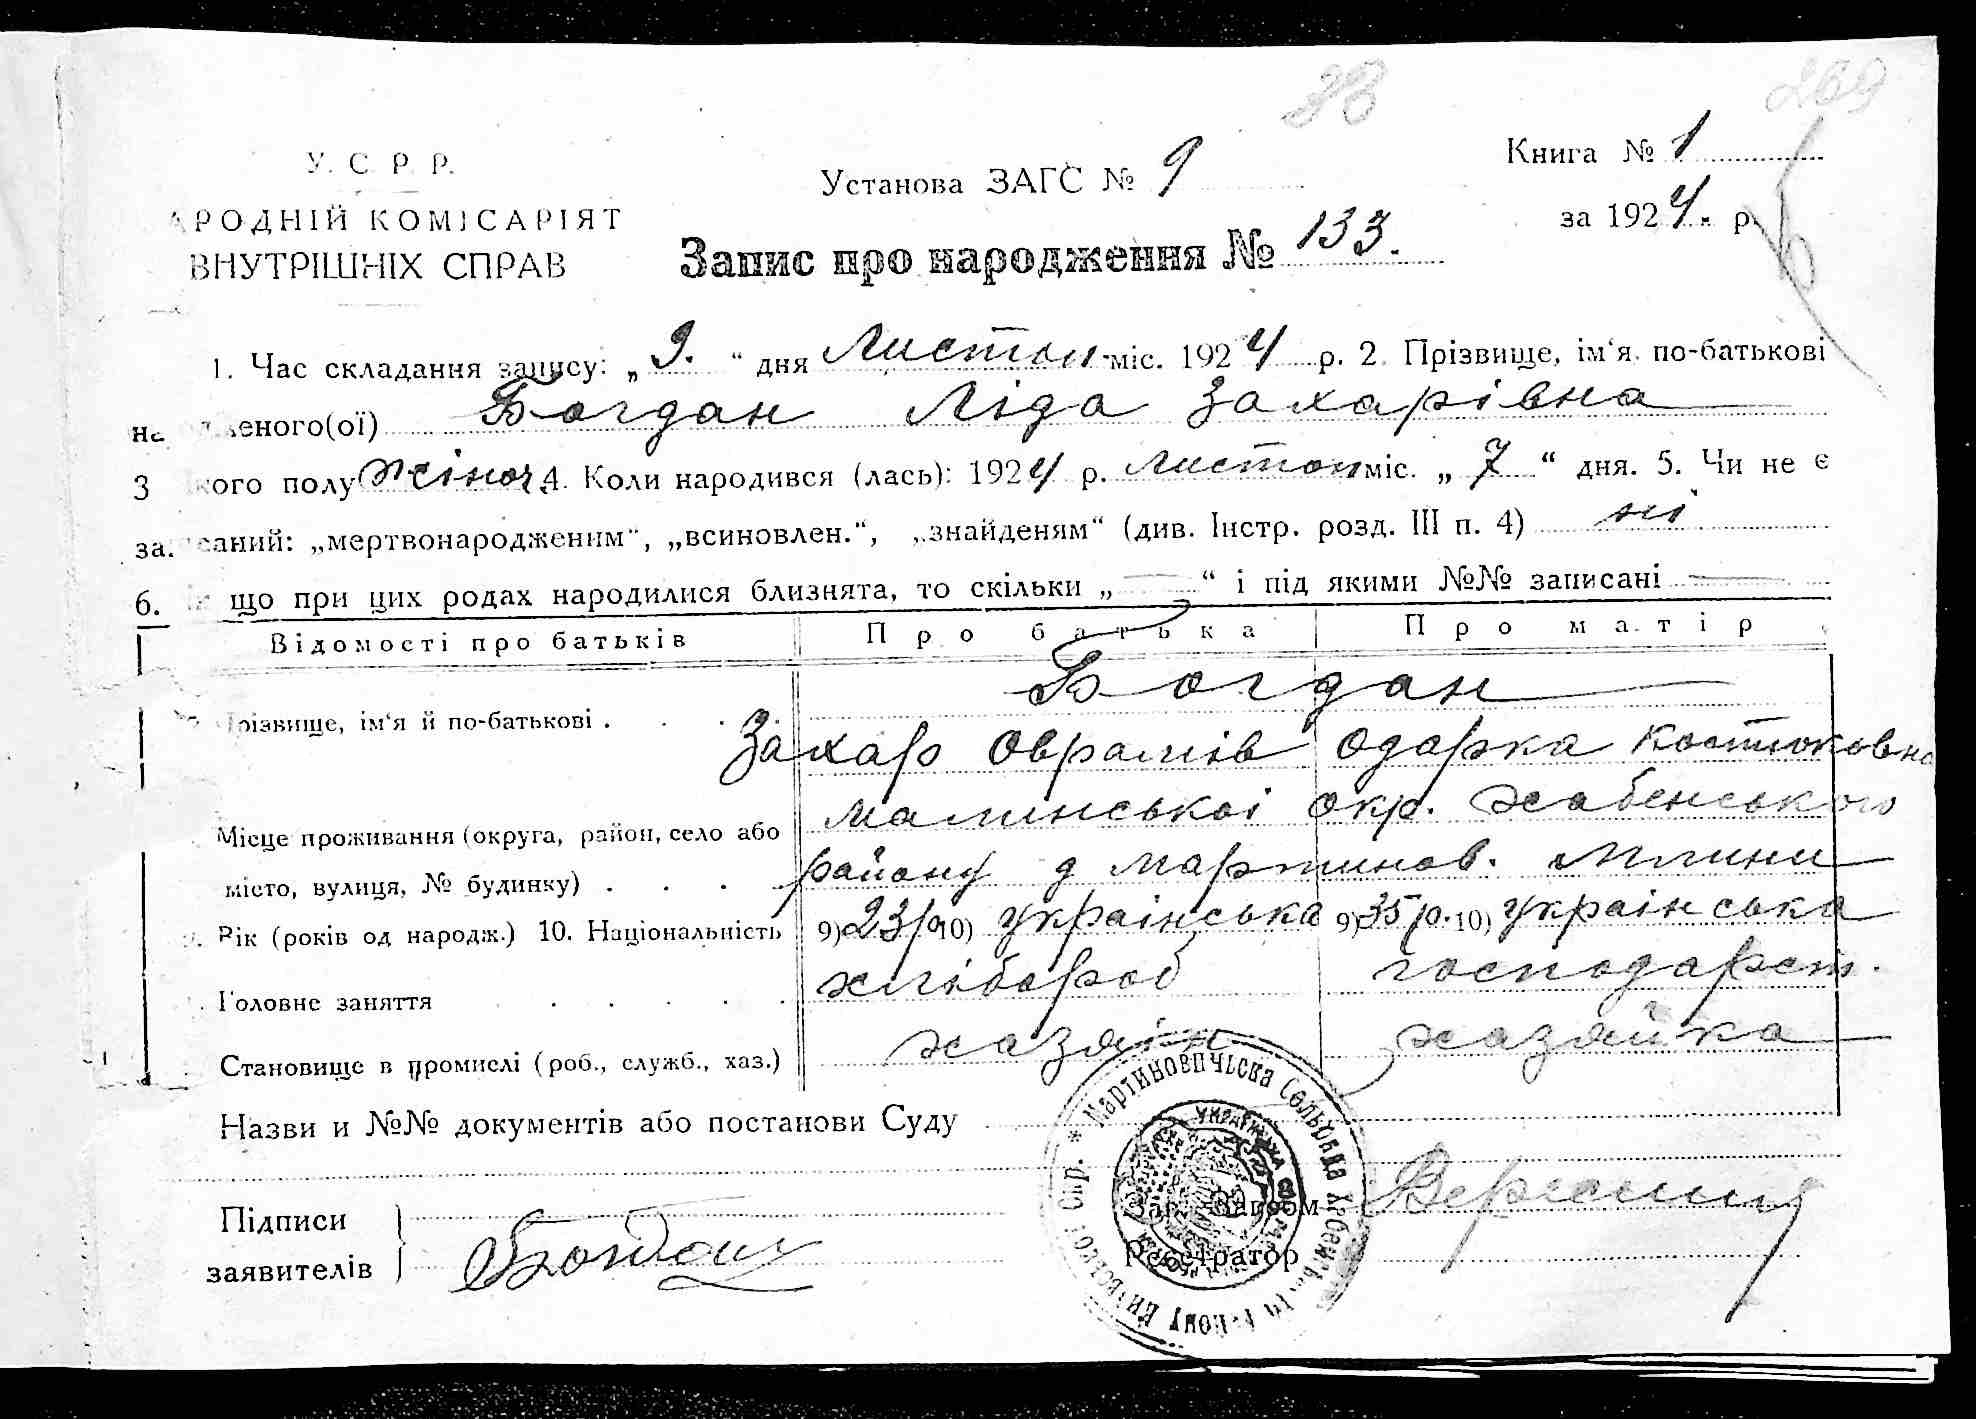 28
269
У. С. Р. Р.
АРОДНІЙ КОМІСАРІЯТ
ВНУТРІШНІХ СПРАВ
Установа ЗАГС № 9
Книга № 1
за 1924. р.
Запис про народження № 133.
1. Час складання запису: „ 9. “ дня Листоп міс. 1924 р. 2. Прізвище, ім‘я, по-батькові
на еного(ої) Богдан Ліда Захарівна
3 кого полу Жіноч 4. Коли народився (лась): 1924 р. Листоп міс. „ 7 “ дня. 5. Чи не є
за саний: „мертвонародженим“, „всиновлен.“, „знайденям“ (див. Інстр. розд. III п. 4) ні
6. що при цих родах народилися близнята, то скільки „ — “ і під якими №№ записані —
Відомості про батьків Про батька Про матір
Богдан
різвище, ім‘я й по-батькові . . . .
Захар Оврамів Одарка Костюковна
Малинської Окр. Хабенського
Місце проживання (округа, район, село або
місто, вулиця, № будинку) . . . . району д Мартинов. Млини
Рік (років од народж.) 10. Національність 9) 23 р 10) українська 9) 35 р. 10) українська
Головне заняття . . . . . хлібороб господарст.
Становище в промислі (роб., служб., хаз.) хазяїн хазяйка
Назви и №№ документів або постанови Суду
Підписи
заявителів
Богдан
Зав. Загсом
Реєстратор